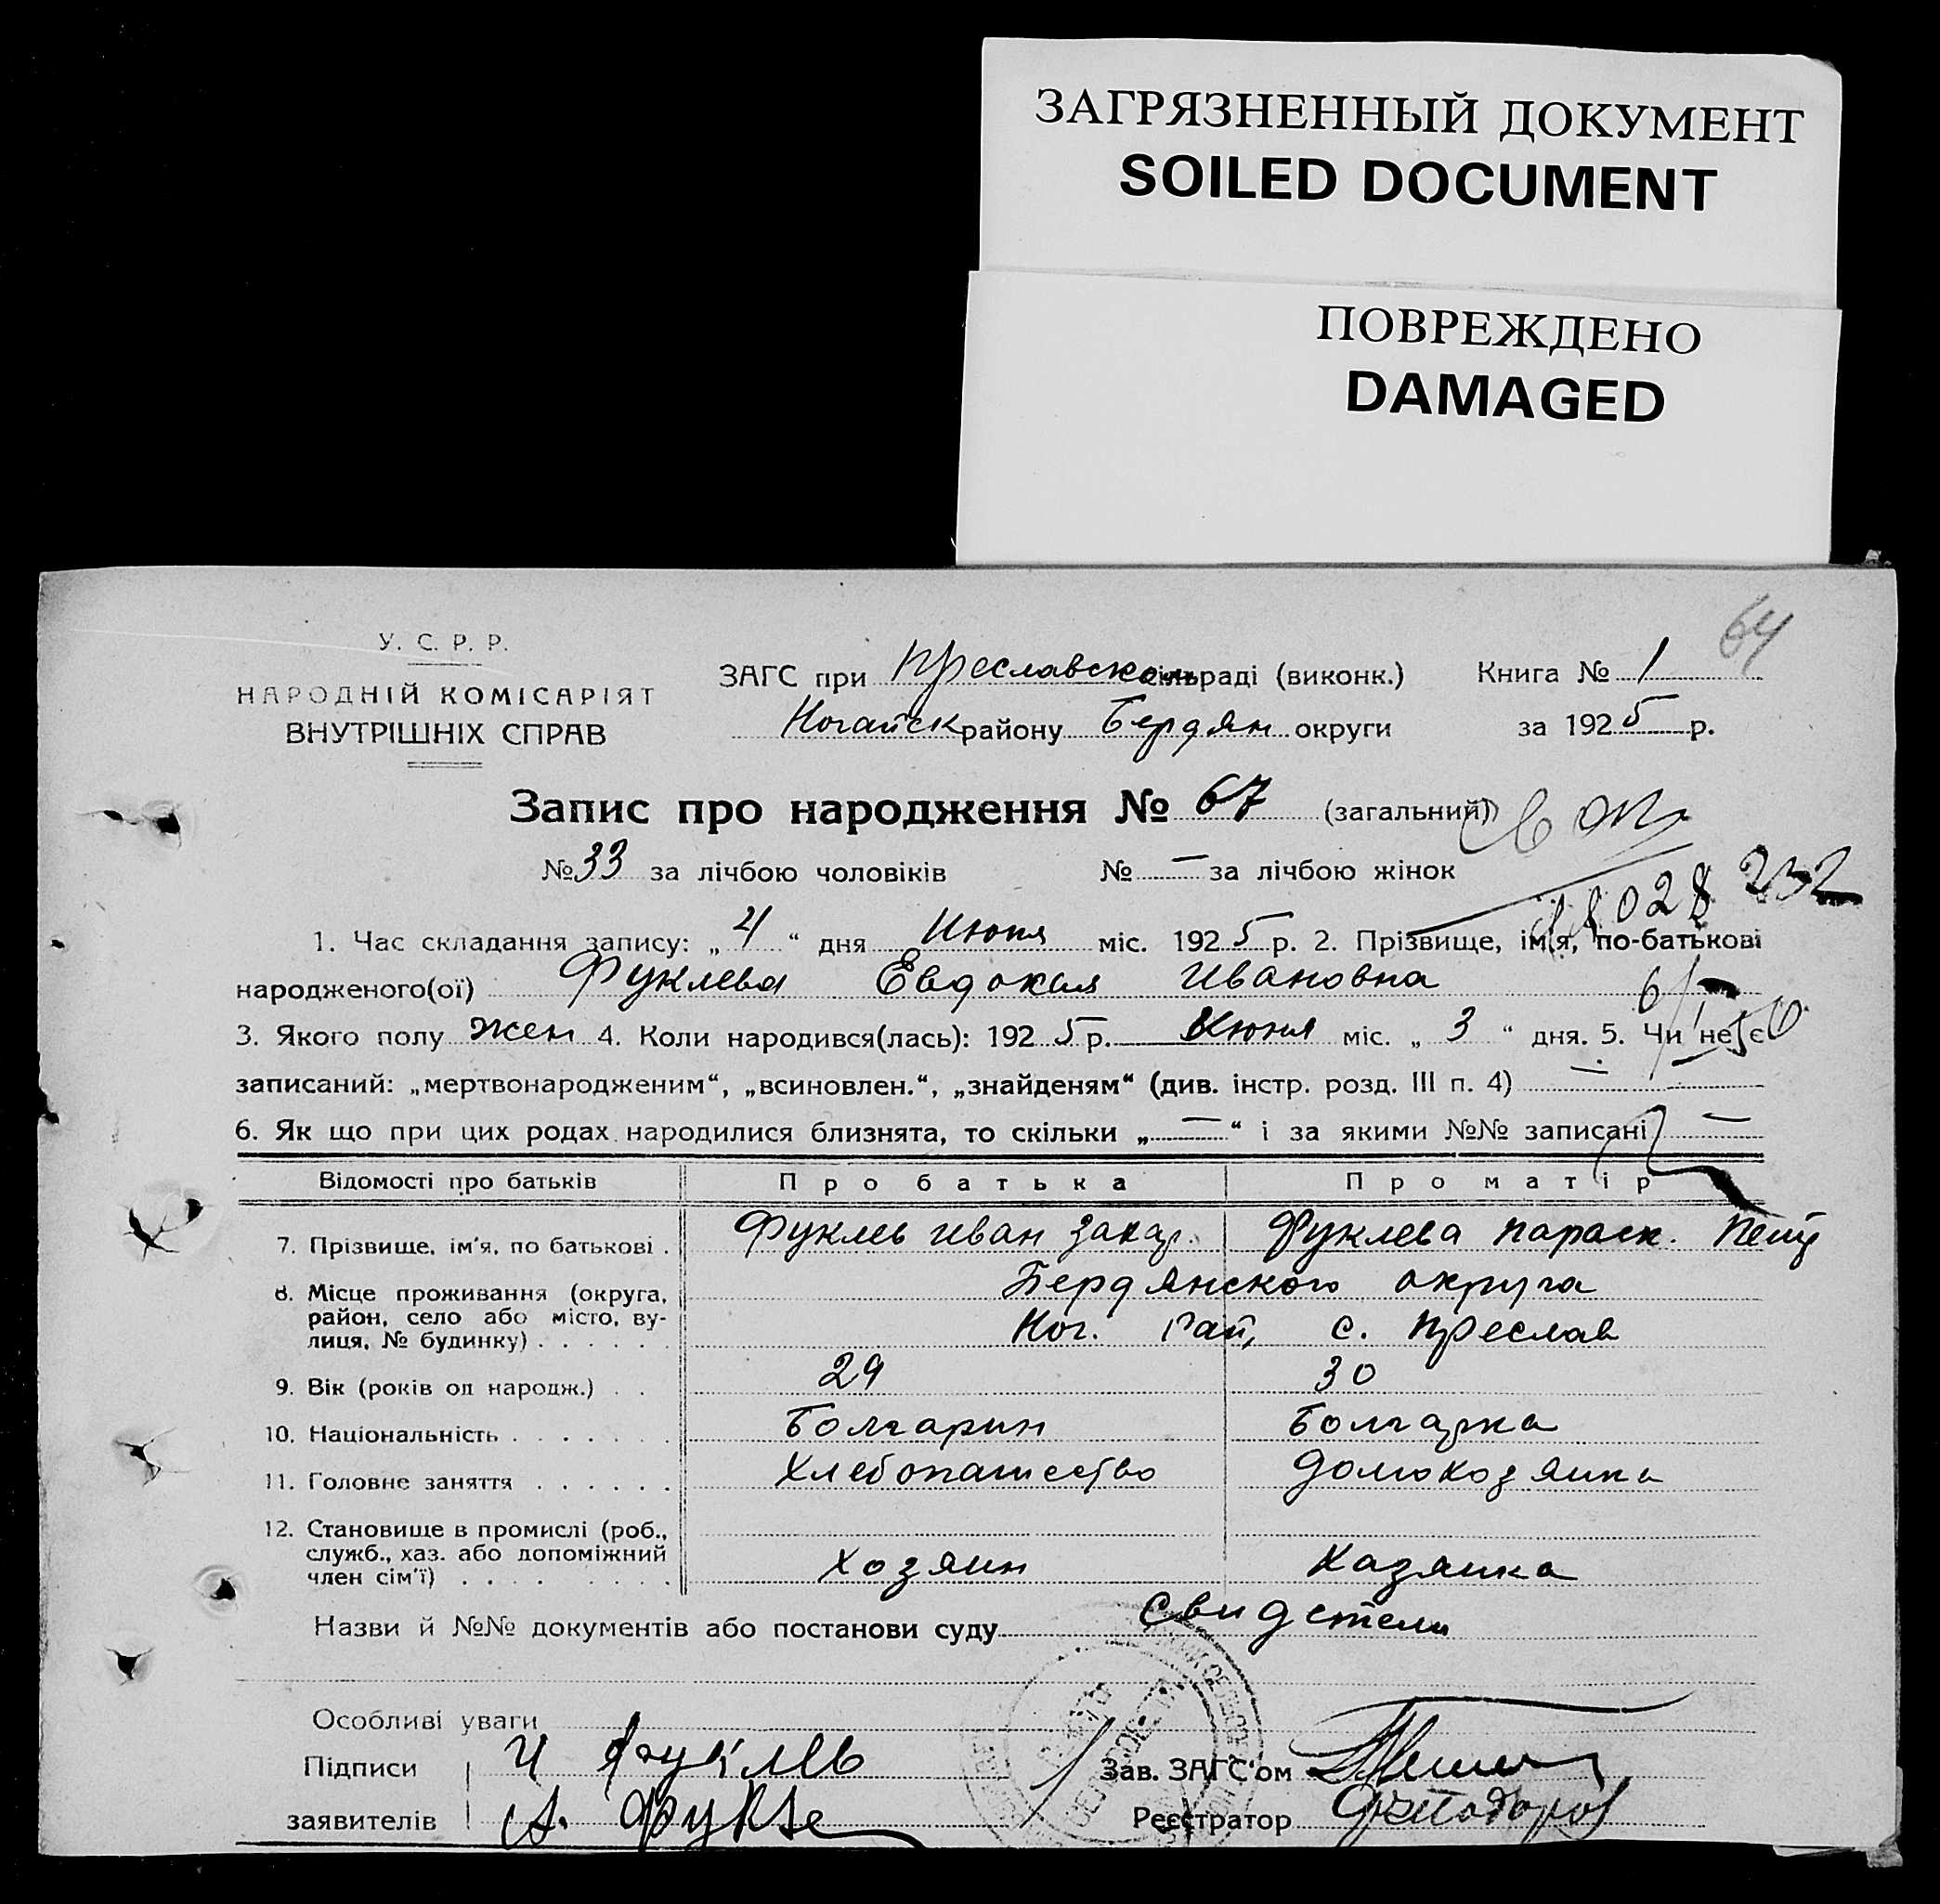 ЗАГРЯЗНЕННЫЙ ДОКУМЕНТ
SOILED DOCUMENT
ПОВРЕЖДЕНО
DAMAGED
64
У. С. Р. Р.
НАРОДНІЙ КОМІСАРІЯТ
ВНУТРІШНІХ СПРАВ
ЗАГС при Преславском сільраді (виконк.) Книга № 1
Ногайск району Бердян округи за 1925 р.
Запис про народження № 67 (загальний)
№ 33 за лічбою чоловіків № — за лічбою жінок
028 232
1. Час складання запису: „4“ дня Июня міс. 1925 р. 2. Прізвище, ім'я, по-батькові
народженого(ої) Фуклева Евдокия Ивановна
3. Якого полу жен 4. Коли народився(лась): 1925 р. Июня міс. „3“ дня. 5. Чи не є
записаний: „мертвонародженим“, „всиновлен.“, „знайденям“ (див. інстр. розд. III п. 4) —
6. Як що при цих родах народилися близнята, то скільки „—“ і за якими №№ записані —
Відомості про батьків Про батька Про матір
7. Прізвище, ім'я, по батькові . Фуклев Иван Захар. Фуклева Параск. Петр
8. Місце проживання (округа, Бердянского округа
район, село або місто, ву-
лиця, № будинку) . . . . . . Ног. Рай, с. Преслав
9. Вік (років од народж.) . . 29 30
10. Національність . . . . . . . Болгарин Болгарка
11. Головне заняття . . . . . . Хлебопашество Домохозяйка
12. Становище в промислі (роб.,
служб., хаз. або допоміжний
член сім'ї) . . . . . . . . Хозяин Хазяика
Назви й №№ документів або постанови суду Свидетели
Особливі уваги
Підписи И Фуклев Зав. ЗАГС'ом
заявителів А. Фукле Реєстратор